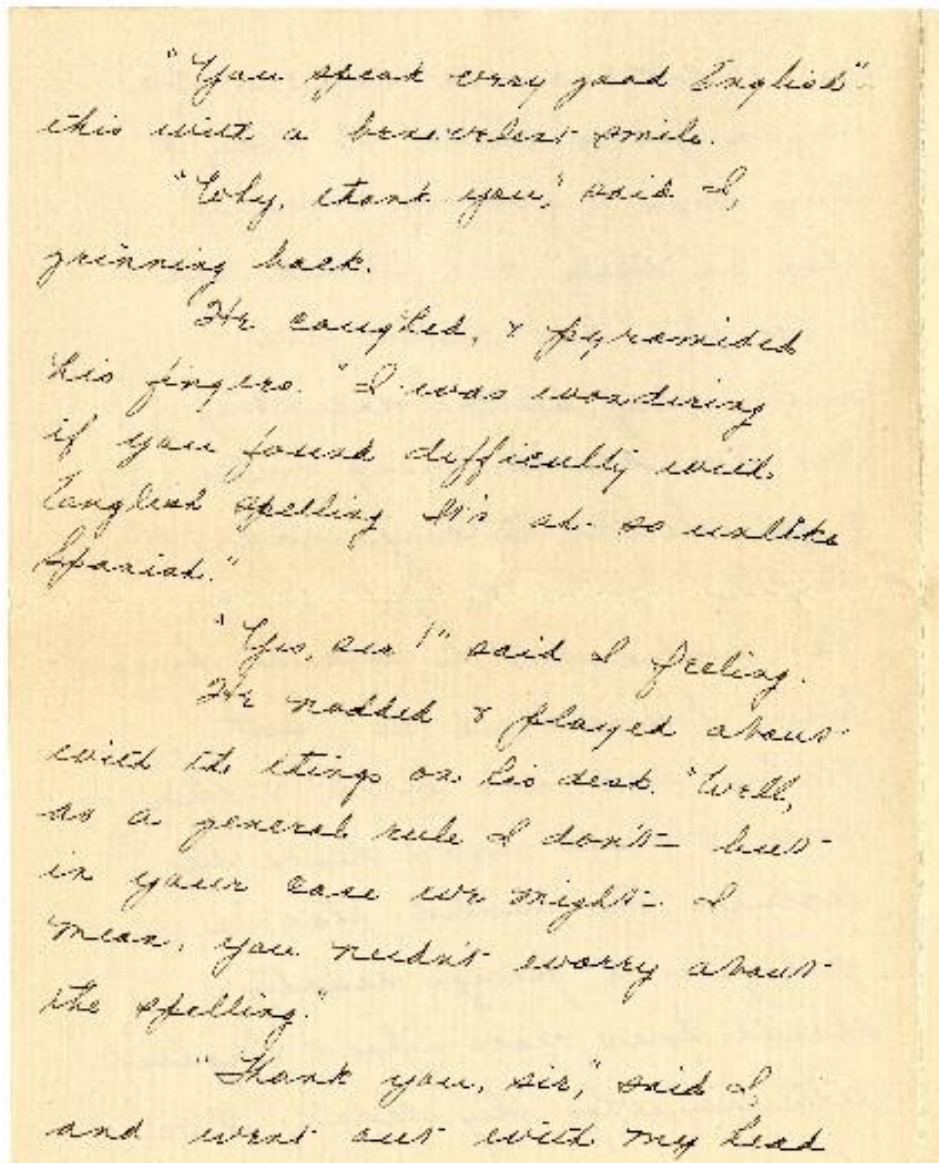 "You speak very good English"
this with a benevolent smile.
"Why, thank you," said I,
grinning back.
He coughed, & pyramided
his fingers. "I was wondering
if you found difficulty with
English spelling It's ah- so unlike
Spanish."
"Yes, sir!" said I feeling.
He nodded & played about
with the things on his desk. "Well,
as a general rule I don't- but-
in your case we might- I
mean, you needn't worry about
the spelling."
"Thank you, sir," said I
and went out with my head